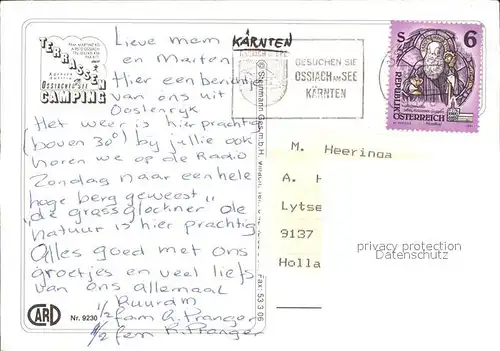 TERRASSEN
OSSIACHER SEE
CAMPING
Lieve mam
en Marton
Hier een berichtje
van ons uit
Oostenrijk
Het weer is hier prachtig
(boven 30°) bij jullie ook
horen we op de Radio
Zondag naar een hele
hoge berg geweest
"de grossglockner" de
natuur is hier prachtig
Alles goed met ons
groetjes en veel liefs
van ons allemaal
Ruurd M
1/2 fam G. Pranger
1/2 fam K. Pranger
CARD
Nr. 9230
KÄRNTEN
BESUCHEN SIE
OSSIACH AM SEE
KÄRNTEN
S 6
REPUBLIK
ÖSTERREICH
M. Heeringa
A. H
Lytse
9137
Holla
privacy protection
DDRbillets.com
Fax: 53 3 06